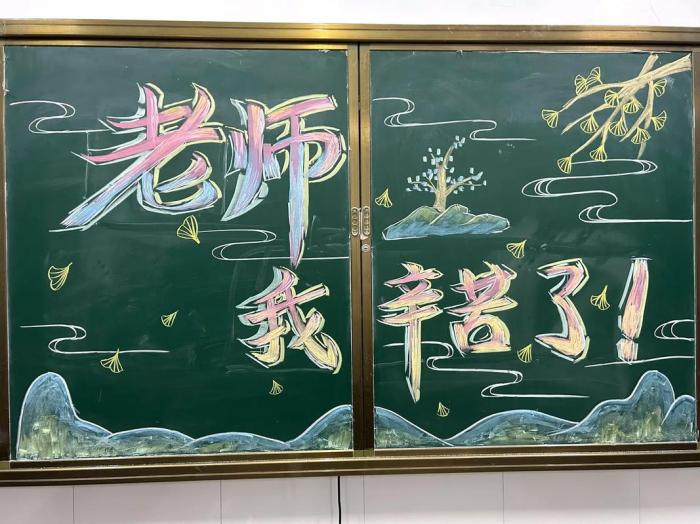 老师
我辛苦了！